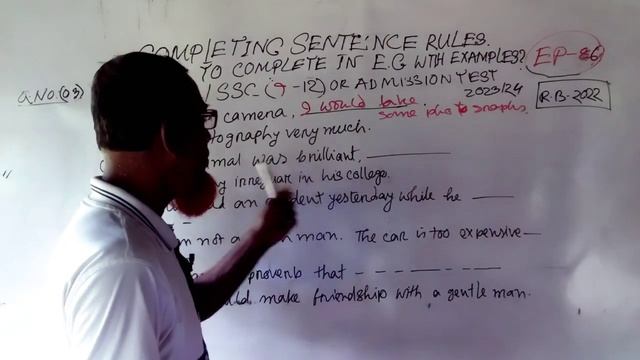 COMPLETING SENTENCE RULES.
TO COMPLETE IN E.G WITH EXAMPLES?
EP-86
/SSC (9-12) OR ADMISSION TEST
2023/24
Q.NO(03)
R.B-2022
camera, I would take
some photographs.
tography very much.
mal was brilliant, ______
irregular in his college.
an ident yesterday while he ___
not a man. The car is too expensive—
proverb that - - - - - - -
uld make friendship with a gentle man.